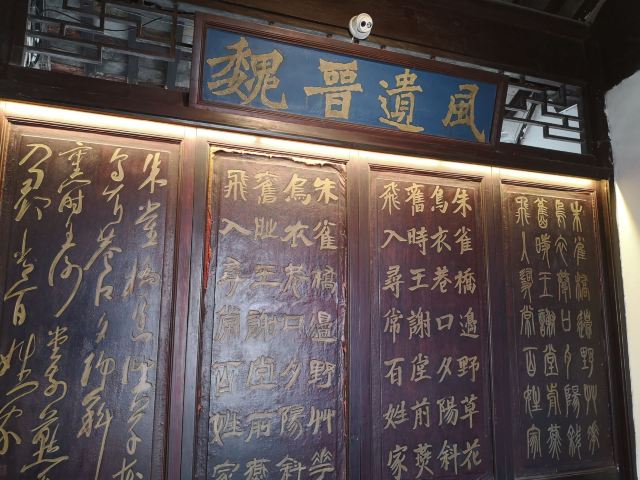 魏晉遺風
朱雀橋邊野艸華
烏衣巷口夕陽斜
舊時王謝堂前燕
飛入尋常百姓家
朱雀橋邊野草花
烏衣巷口夕陽斜
舊時王謝堂前燕
飛入尋常百姓家
朱雀橋邊野艸華
烏衣巷口夕陽斜
舊時王謝堂前燕
飛入尋常百姓家
朱雀橋邊野草花
烏衣巷口夕陽斜
舊時王謝堂前燕
飛入尋常百姓家